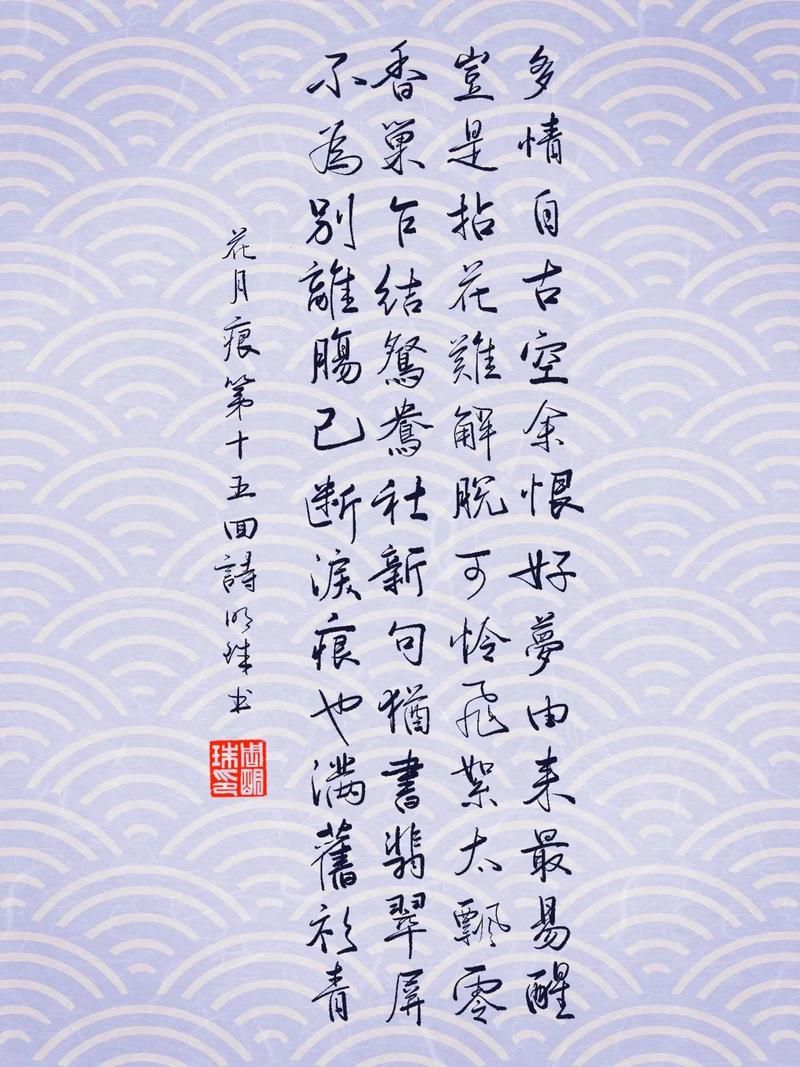 多情自古空余恨好夢由来最易醒
豈是拈花難解脱可憐飛絮太飄零
香巢乍結鴛鴦社新句猶書翡翠屏
不為别離腸已断淚痕也满舊衫青
花月痕第十五回詩明珠书
周明珠印